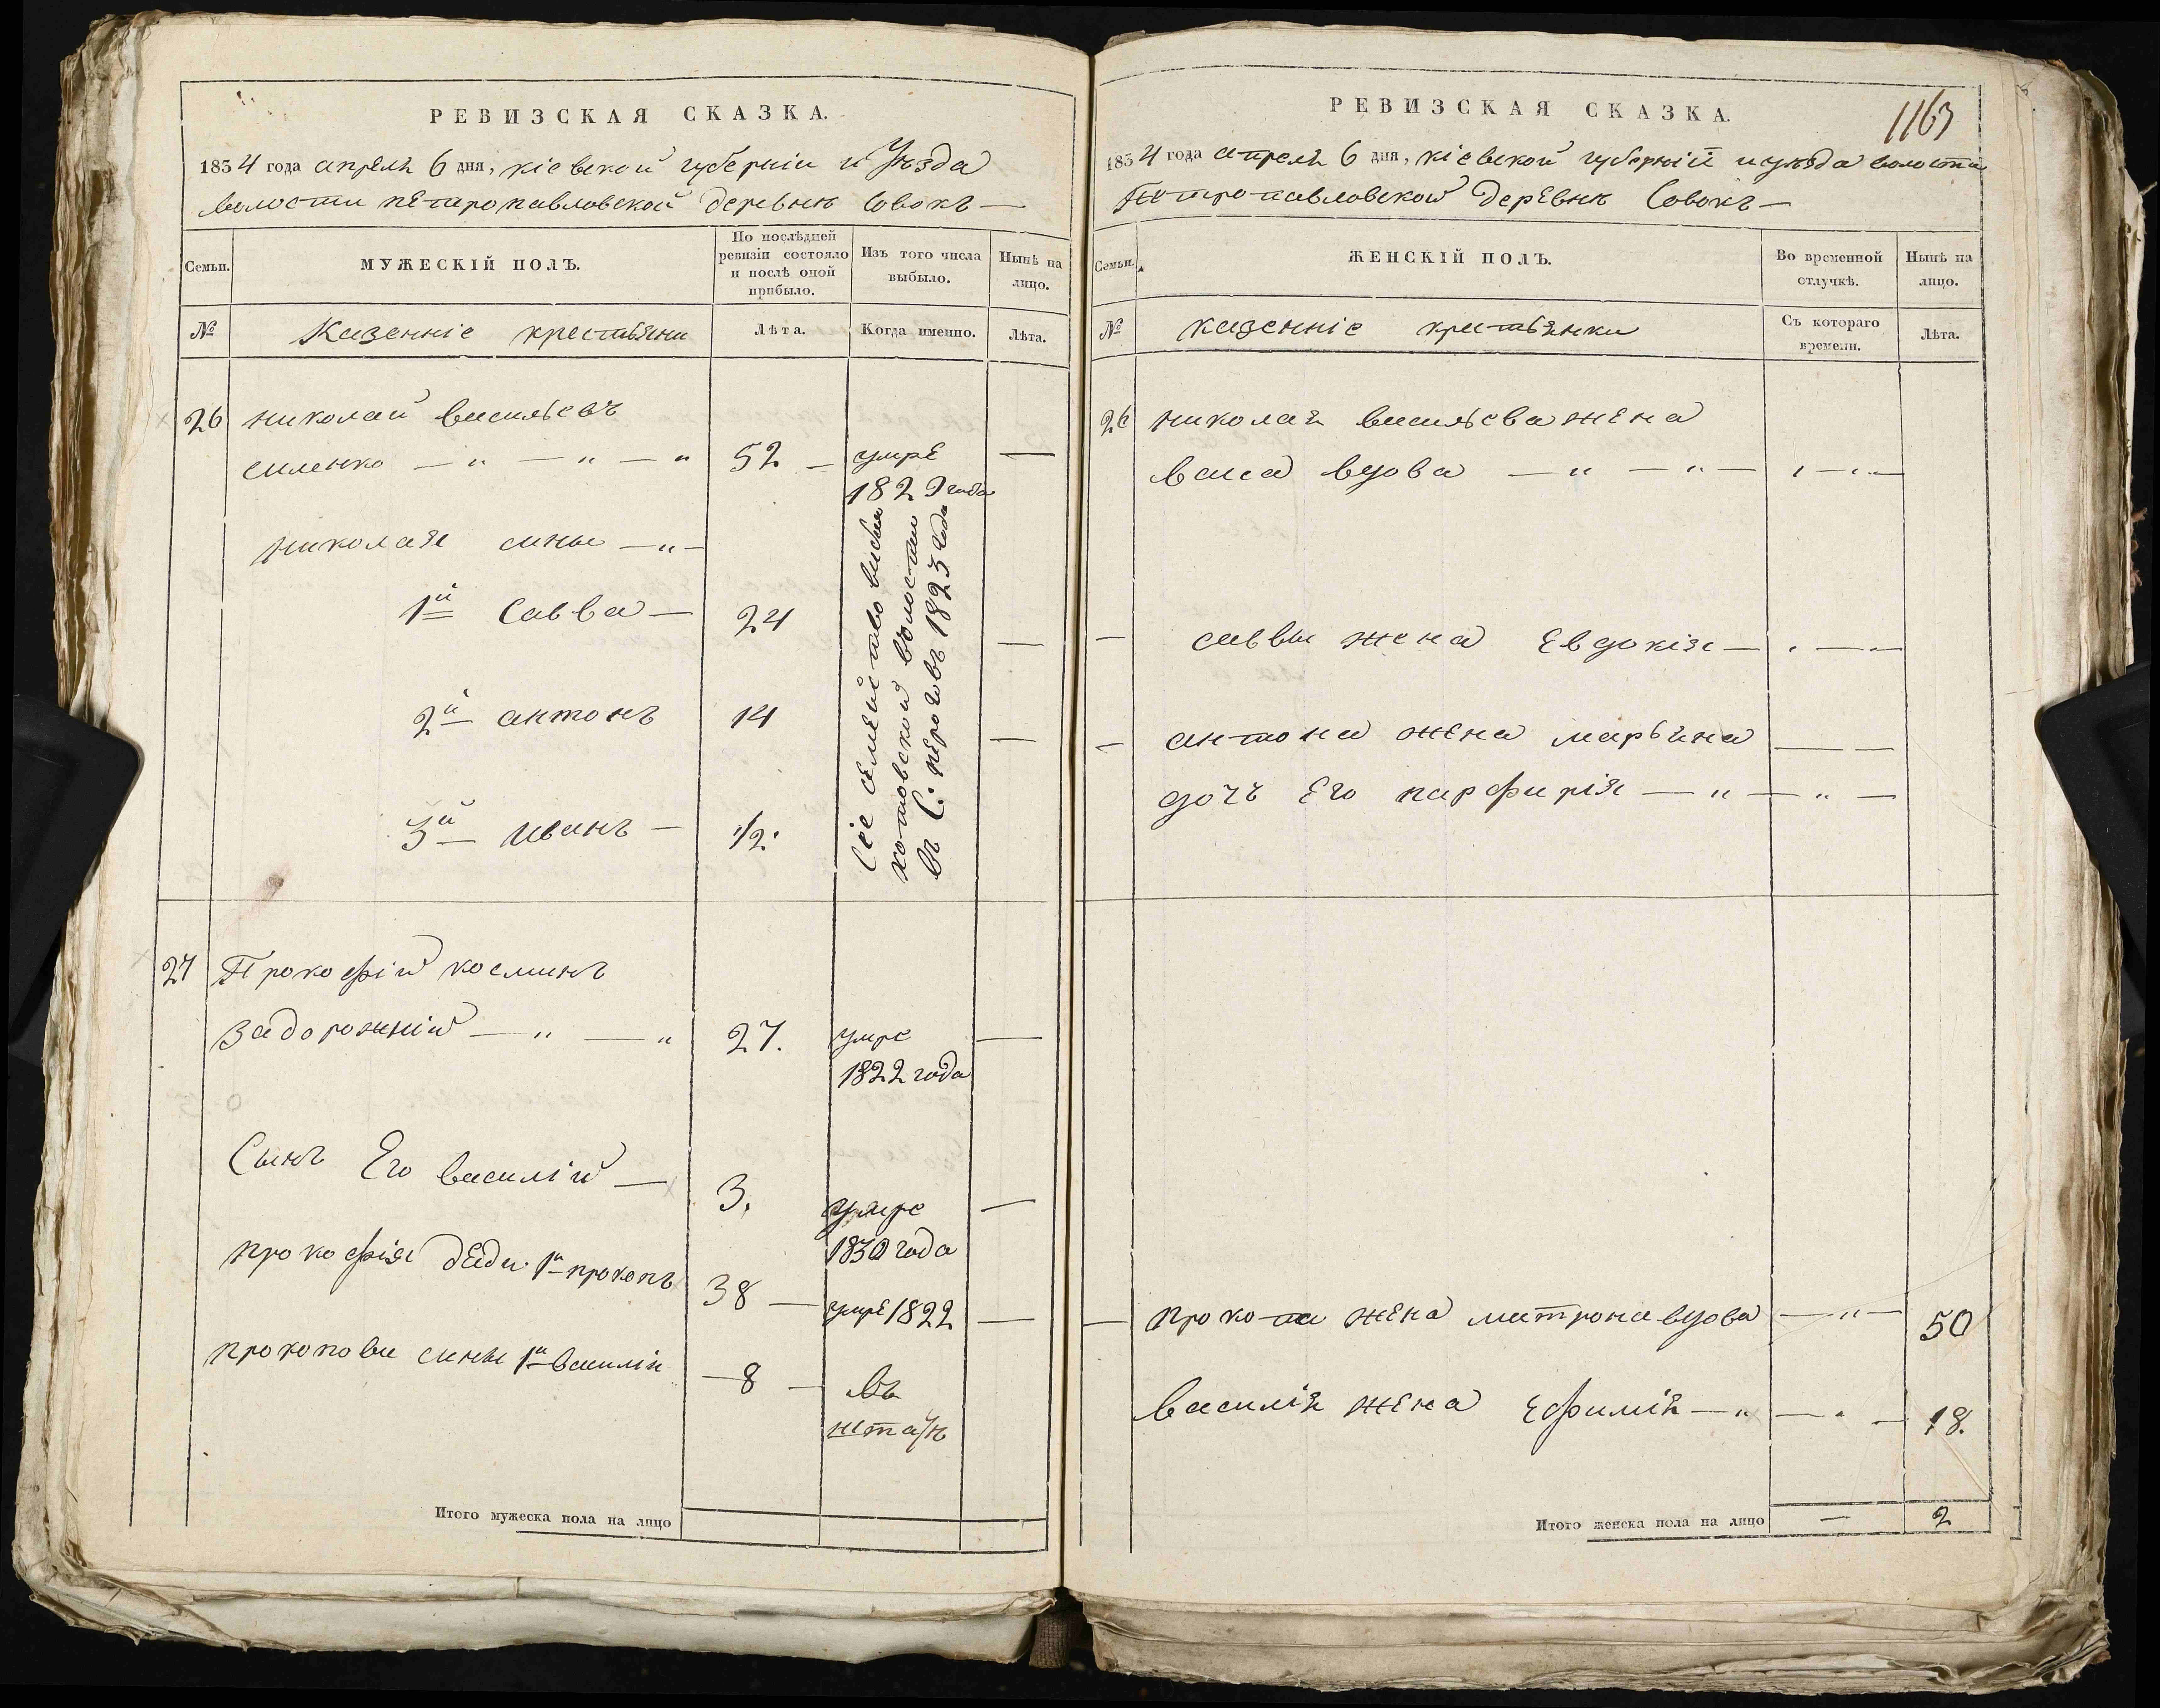 РЕВИЗСКАЯ СКАЗКА.
1834 года апреля 6 дня, кіевской губерніи и Уѣзда
волости пЕтропавловской деревнѣ Совокъ —
Семьи.
МУЖЕСКІЙ ПОЛЪ.
По послѣдней ревизіи состояло и послѣ оной прибыло.
Изъ того числа выбыло.
Нынѣ на лицо.
№
Казенніе крестьяни
Лѣта.
Когда именно.
Лѣта.
26 николай васильевъ
силенко — " — " — " 52 — умрЕ —
1829 года
николая сины — " —
1й Савва — 24 —
2й антонъ 14 —
3й иванъ — 1/2.
Сіе семейство
хотовской волости
въ С: пероговъ 1823 года
27 Прокофій косминъ
Задорожній — " — " 27. умре —
1822 года
Сынъ Его василій — 3. умре —
1830 года
прокофія дЕди 1й прокопъ 38 — умрЕ 1822 —
прокопови сини 1й василій — 8 — въ
Итого мужеска пола на лицо
РЕВИЗСКАЯ СКАЗКА.
1163
1834 года апреля 6 дня, кіевской губерній и уезда волости
Петропавловской дерЕвнѣ Совокъ —
Семьи.
ЖЕНСКІЙ ПОЛЪ.
Во временной отлучкѣ.
Нынѣ на лицо.
№
казенніе крестьянки
Съ котораго времени.
Лѣта.
26 николая васильева жЕна
васа вдова — " — " —
— саввы жена Евдокія —
— антона жЕна марьяна — —
дочъ Его парфирія — " — " —
— прокопа жЕна матрона вдова — " — 50
василія жЕна Ефимія — " — " — 18.
Итого женска пола на лицо — 2